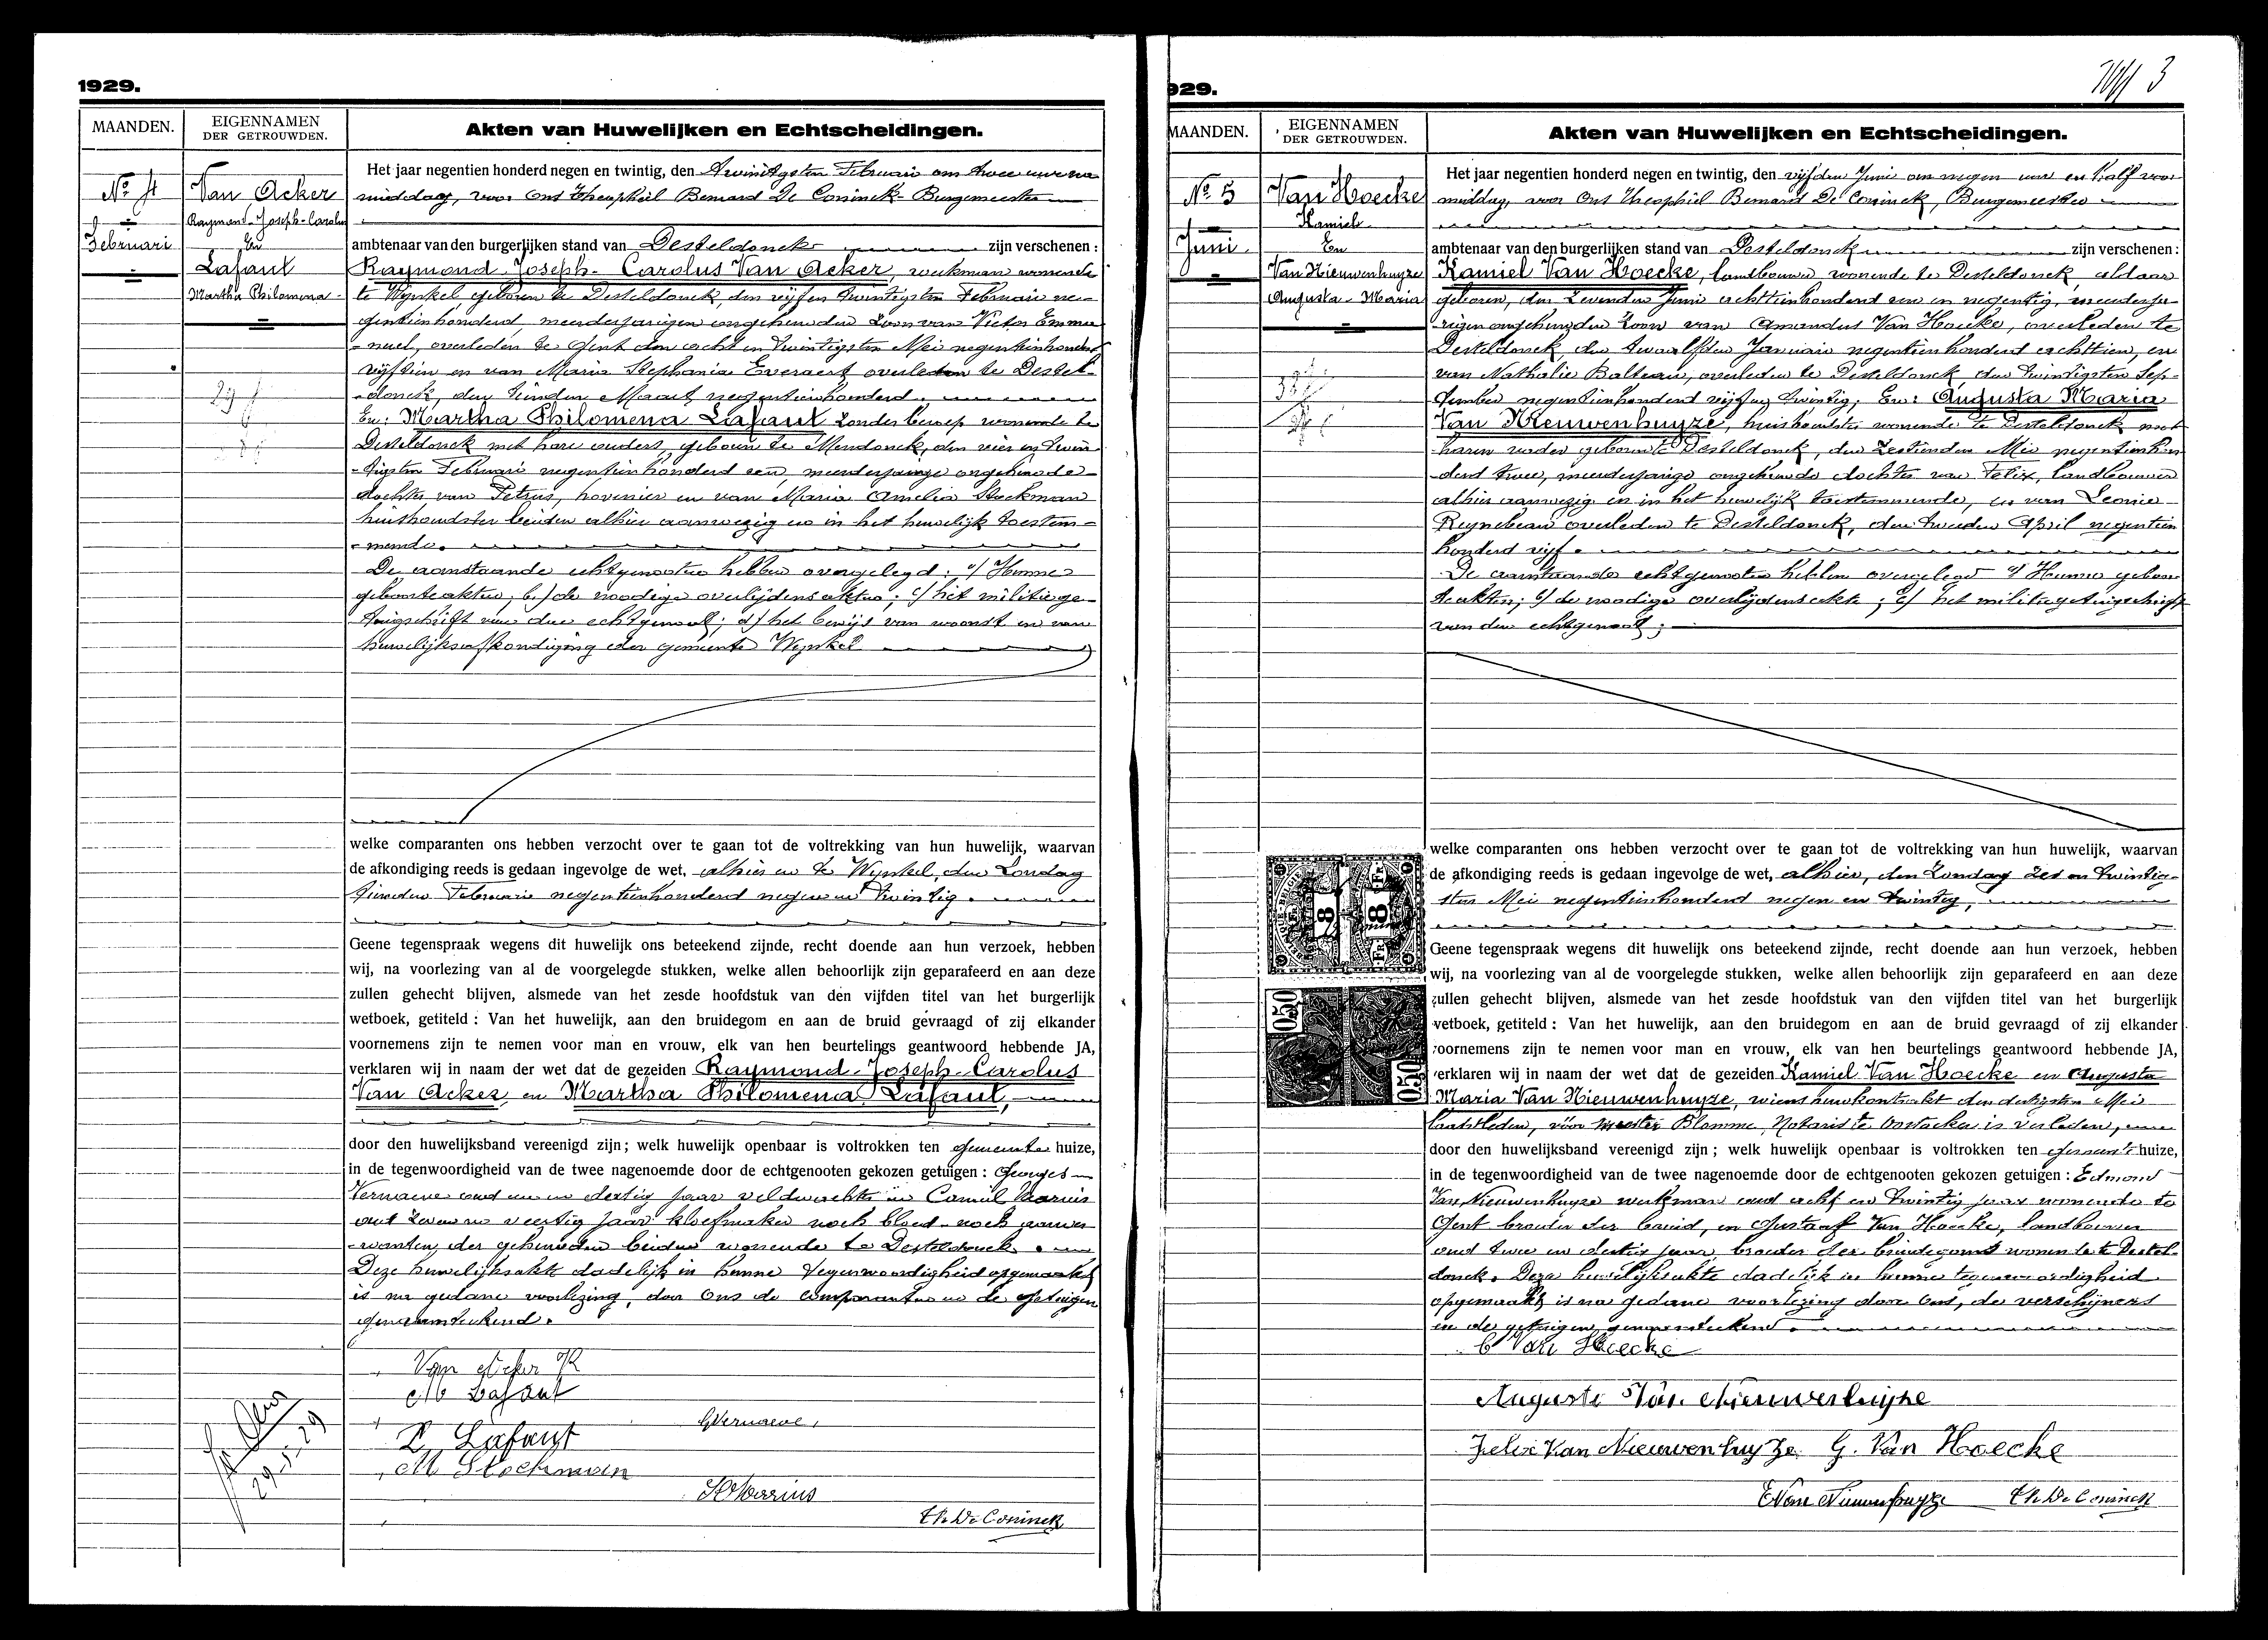 1929.
MAANDEN.
EIGENNAMEN
DER GETROUWDEN.
Akten van Huwelijken en Echtscheidingen.
Nº 4
Februari
Van Acker
Raymond-Joseph-Carolus
En
Lafaut
Martha Philomena
Het jaar negentien honderd negen en twintig, den twintigsten Februari om twee uren na
middag, voor Ons Theophiel Bernard De Coninck Burgemeester
ambtenaar van den burgerlijken stand van Desteldonck zijn verschenen :
Raymond-Joseph-Carolus Van Acker, werkman wonende
te Wynkel, geboren te Desteldonck, den vijf en twintigsten Februari ne-
gentienhonderd, meerderjarigen ongehuwden zoon van Victor Emma-
nuel, overleden te Gent den acht en twintigsten Mei negentienhonderd
vijftien en van Maria Stephania Everaert overleden te Destel-
donck, den tienden Maart negentienhonderd.
En: Martha Philomena Lafaut zonder beroep wonende te
Desteldonck met hare ouders, geboren te Mendonck, den vier en twin-
tigsten Februari negentienhonderd een, meerderjarige ongehuwde
dochter van Petrus, hovenier en van Maria Amelia Stockman
huishoudster beiden alhier aanwezig en in het huwelijk toestem-
mende.
De aanstaande echtgenooten hebben overgelegd: a/ Hunne
geboorteakten; b/ de noodige overlijdensakten; c/ het militiege-
tuigschrift van den echtgenoot; d/ het bewijs van woonst en van
huwelijksafkondiging der gemeente Wynkel
welke comparanten ons hebben verzocht over te gaan tot de voltrekking van hun huwelijk, waarvan
de afkondiging reeds is gedaan ingevolge de wet, alhier en te Wynkel, den Zondag
tienden Februari negentienhonderd negen en twintig.
Geene tegenspraak wegens dit huwelijk ons beteekend zijnde, recht doende aan hun verzoek, hebben
wij, na voorlezing van al de voorgelegde stukken, welke allen behoorlijk zijn geparafeerd en aan deze
zullen gehecht blijven, alsmede van het zesde hoofdstuk van den vijfden titel van het burgerlijk
wetboek, getiteld : Van het huwelijk, aan den bruidegom en aan de bruid gevraagd of zij elkander
voornemens zijn te nemen voor man en vrouw, elk van hen beurtelings geantwoord hebbende JA,
verklaren wij in naam der wet dat de gezeiden Raymond-Joseph-Carolus
Van Acker, en Martha Philomena Lafaut,
door den huwelijksband vereenigd zijn ; welk huwelijk openbaar is voltrokken ten gemeente huize,
in de tegenwoordigheid van de twee nagenoemde door de echtgenooten gekozen getuigen : Georges
Vernaeve oud en dertig jaar veldwachter en Camiel
oud zeven en veertig jaar kloefmaker noch bloed- noch aanver-
wanten, der gehuwden beiden wonende te Desteldonck.
Deze huwelijksakte dadelijk in hunne tegenwoordigheid opgemaakt
is na gedane voorlezing, door Ons de comparanten en de getuigen
genaamteekend.
Van Acker R
M Lafaut
GVernaeve,
P. Lafaut
M Stockman
Th De Coninck
29-5-29
929.
3
MAANDEN.
EIGENNAMEN
DER GETROUWDEN.
Akten van Huwelijken en Echtscheidingen.
Nº 5
Juni
Van Hoecke
Kamiel
En
Van Nieuwenhuyze
Augusta-Maria
Het jaar negentien honderd negen en twintig, den vijfden Juni om negen uur en half voor
middag, voor Ons Theophiel Bernard De Coninck, Burgemeester
ambtenaar van den burgerlijken stand van Desteldonck zijn verschenen :
Kamiel Van Hoecke, landbouwer wonende te Desteldonck, aldaar
geboren, den zevenden Juni achttienhonderd een en negentig, meerderja-
rigen ongehuwden zoon van Amandus Van Hoecke, overleden te
Desteldonck, den twaalfden Januari negentienhonderd achttien, en
van Nathalie Balteau, overleden te Desteldonck, den twintigsten Sep-
tember negentienhonderd vijf en twintig; En: Augusta Maria
Van Nieuwenhuyze, huishoudster wonende te Desteldonck met
haren vader geboren te Desteldonck, den zestienden Mei negentienhon-
derd twee, meerderjarige ongehuwde dochter van Felix, landbouwer
alhier aanwezig en in het huwelijk toestemmende, en van Leonie
Reynebeau overleden te Desteldonck, den tweeden April negentien
honderd vijf.
De aanstaande echtgenooten hebben overgelegd a/ Hunne geboor-
teakten; b/ de noodige overlijdensakte; c/ het militiegetuigschrift
van den echtgenoot;
welke comparanten ons hebben verzocht over te gaan tot de voltrekking van hun huwelijk, waarvan
de afkondiging reeds is gedaan ingevolge de wet, alhier, den Zondag zes en twintig-
sten Mei negentienhonderd negen en twintig,
8 8
FR.
0,50
0,50
Geene tegenspraak wegens dit huwelijk ons beteekend zijnde, recht doende aan hun verzoek, hebben
wij, na voorlezing van al de voorgelegde stukken, welke allen behoorlijk zijn geparafeerd en aan deze
zullen gehecht blijven, alsmede van het zesde hoofdstuk van den vijfden titel van het burgerlijk
wetboek, getiteld : Van het huwelijk, aan den bruidegom en aan de bruid gevraagd of zij elkander
voornemens zijn te nemen voor man en vrouw, elk van hen beurtelings geantwoord hebbende JA,
verklaren wij in naam der wet dat de gezeiden Kamiel Van Hoecke en Augusta
Maria Van Nieuwenhuyze, wiens huwkontrakt den dertigsten Mei
laatstleden, vóór meester Blomme, Notaris te Oostacker is verleden,
door den huwelijksband vereenigd zijn ; welk huwelijk openbaar is voltrokken ten gemeente huize,
in de tegenwoordigheid van de twee nagenoemde door de echtgenooten gekozen getuigen : Edmond
Van Nieuwenhuyze werkman oud acht en twintig jaar wonende te
Gent broeder der bruid, en Gustaaf Van Hoecke, landbouwer
oud twee en dertig jaar, broeder des bruidegoms wonende te Destel-
donck. Deze huwelijksakte dadelijk in hunne tegenwoordigheid
opgemaakt is na gedane voorlezing door Ons, de verschijners
en de getuigen genaamteekend.
C Van Hoecke
Augusta Van Nieuwenhuyze
Felix Van Nieuwenhuyze G. Van Hoecke
E Van Nieuwenhuyze Th De Coninck